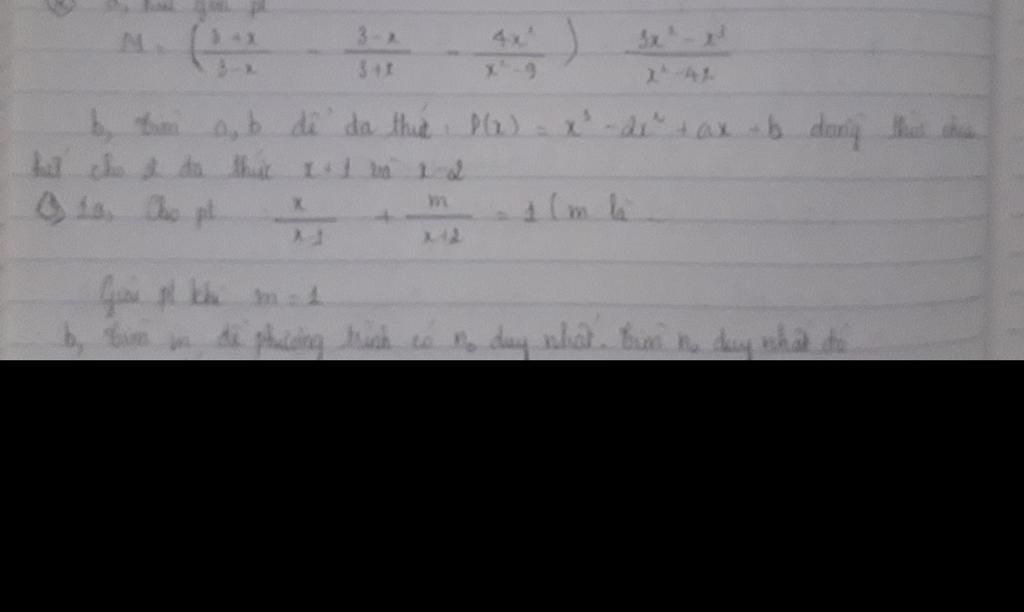 a, Rút gọn pt
M = (3+x/3-x - 3-x/3+x - 4x²/x²-9) 3x²-x³/x²-4x
b, tìm a, b để đa thức P(x) = x³ - 2x² + ax - b đồng thời chia
hết cho 2 đa thức x+1 và x-2
1a, Cho pt x/x-1 + m/x+2 = 1 (m là
Giải pt khi m = 1
b, tìm m để phương trình có n₀ duy nhất. Tìm n₀ duy nhất đó